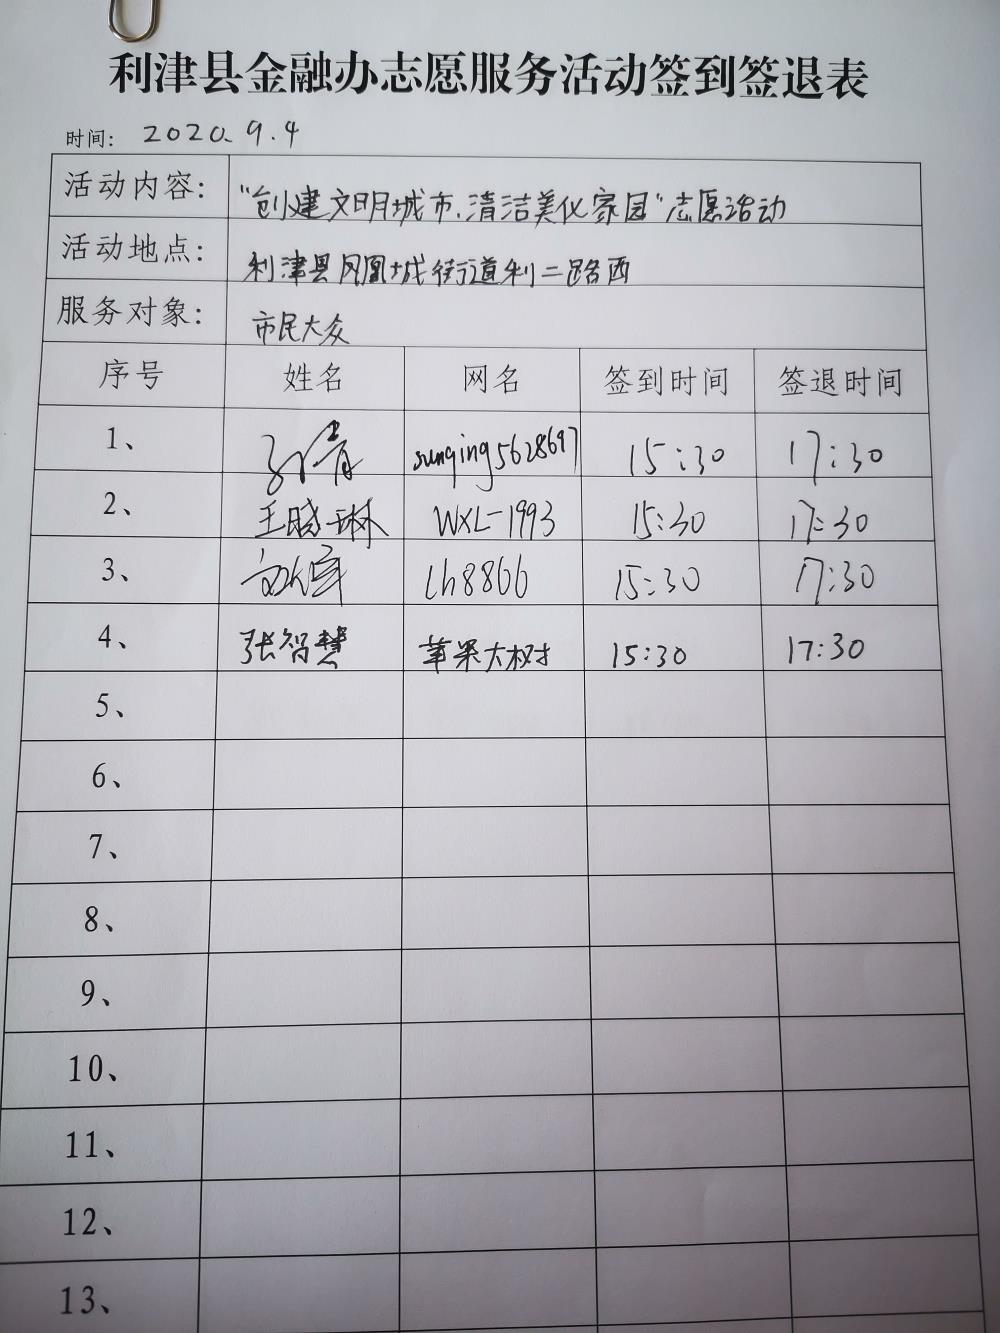 利津县金融办志愿服务活动签到签退表
时间: 2020.9.4
活动内容: "创建文明城市、清洁美化家园"志愿活动
活动地点: 利津县凤凰城街道利二路西
服务对象: 市民大众
序号 姓名 网名 签到时间 签退时间
1、 孙青 sunqing5628697 15:30 17:30
2、 王晓琳 WXL-1993 15:30 17:30
3、 lh8866 15:30 17:30
4、 张智慧 苹果大树 15:30 17:30
5、
6、
7、
8、
9、
10、
11、
12、
13、